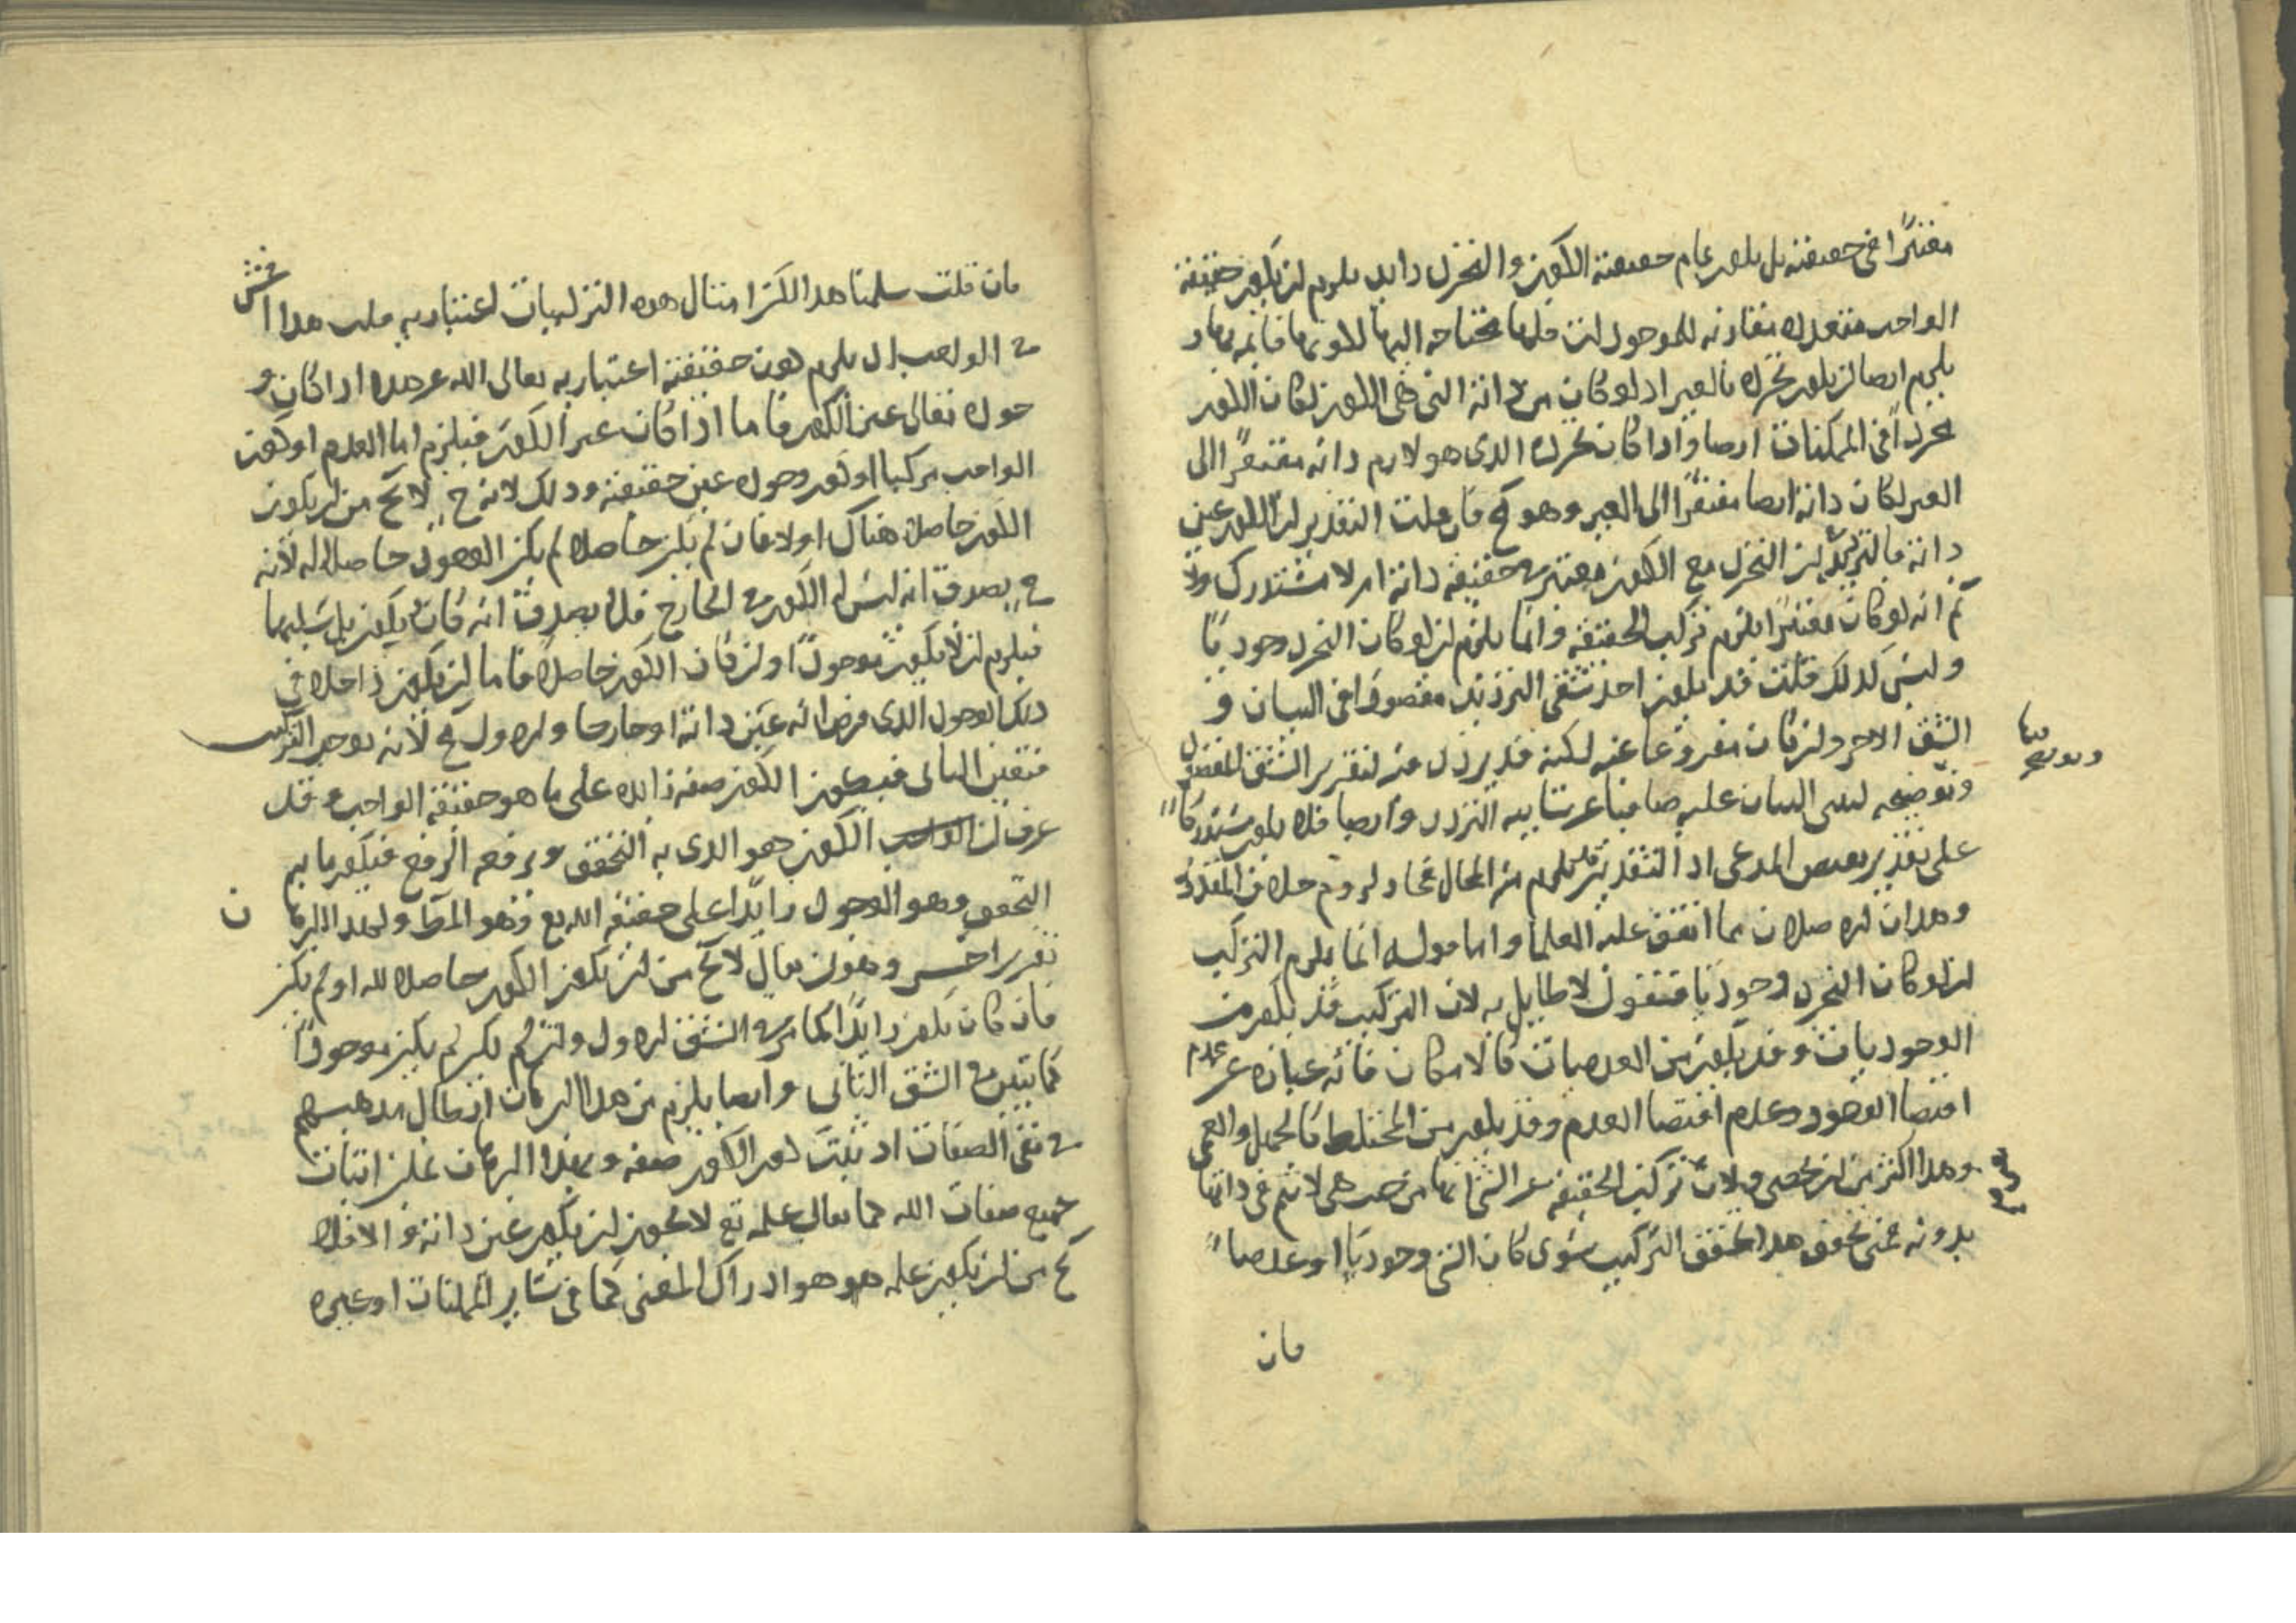 معتبرًا في حقيقته بل يكون تمام حقيقته الكون والتجرد زايد يلزم ان يكون حقيقة
الواجب متعددة مقارنة للموجودات محتاجة اليها لكونها قائمة بها و
يلزم ايضا ان يكون تجرده بالغير اذ لو كان من ذاته التي هي الكون لكان الكون
مجردًا في الممكنات ايضا واذا كان تجرده الذي هو لازم ذاته مفتقرًا الى
الغير لكان ذاته ايضا مفتقرًا الى الغير وهو مح فان قلت التقدير ان الكون عين
ذاته فالترديد بان التجرد مع الكون معتبر في حقيقة ذاته ام لا مستدرك ولا
ثم انه لو كان معتبرًا يلزم تركب الحقيقة وانما يلزم ان لو كان التجرد وجوديًا
وليس كذلك قلت قد يكون احد شقي الترديد مقصودا في البيان و
الشق الاخر وان كان مفروغا عنه لكنه قد يردد منه لتقرير الشق المقصود
وتوضيحه ليتني البيان عليه صافيا عن شايبة التردد وايضا فلا يكون مستدركًا
على تقدير بعض المدعى اذ التقدير يلزم منه المحال
وهذان الاصلان مما اتفق عليه العلما واما قوله انما يلزم التركيب
ان لو كان التجرد وجوديًا فنقول لا طايل به لان التركيب قد يكون من
الوجوديات وقد يكون من العدميات كالامكان فانه عبارة عن عدم
اقتضا الوجود وعدم اقتضا العدم وقد يكون من المختلط كالجهل والعمى
وهذا اكثر من ان يحصى ولان تركيب الحقيقة عن الشي انها من حيث هي لا تتم في ذاتها
بدونه فمتى تحقق هذا تحقق التركيب سوى كان الشي وجوديًا او عدميًا
فان
فان قلت سلمنا هذا لكن امثال هذه التركيبات اعتبارية قلت هذا
في الواجب اذ يلزم كون حقيقته اعتبارية تعالى الله عن هذا اذا كان و
جوده تعالى عين الكون فاما اذا كان غير الكون فيلزم اما العدم او كون
الواجب مركبا او كون وجوده عين حقيقته وذلك لانه ح لا يخ من ان يكون
الكون حاصلا هناك اولا فان لم يكن حاصلا لم يكن الوجود حاصلا له لانه
ح يصدق انه ليس له الكون في الخارج فلا يصدق انه كان ويكون بل سلبهما
فيلزم ان لا يكون موجودًا وان كان الكون حاصلا فاما ان يكون داخلا في
ذلك الوجود الذي فرض انه عين ذاته او خارجا والاول مح لانه يوجب التركيب
فتعين الثاني فيكون الكون صفة زايدة على ما هو حقيقة الواجب وقد
عرفت ان الكون هو الذي به التحقق وبرفعه الرفع فيكون ما به
التحقق وهو الوجود زايدًا على حقيقة الله تع وهو المط ولهذا البرها
ن
تقرير اخر وهو ان يقال لا يخ من ان يكون الكون حاصلا لله او لم يكن
فان كان يكون زايدًا كما مر في الشق الاول وان لم يكن لم يكن موجودًا
كما تبين في الشق الثاني وايضا يلزم من هذا البرهان ابطال مذهبهم
في نفي الصفات اذ ثبت كون الكون صفة وبهذا البرهان يمكن اثبات
جميع صفات الله كما يقال علمه تع لا يجوز ان يكون عين ذاته والا فلا
يخ من ان يكون علمه هو هو ادراك المعنى كما في ساير الممكنات او غيره